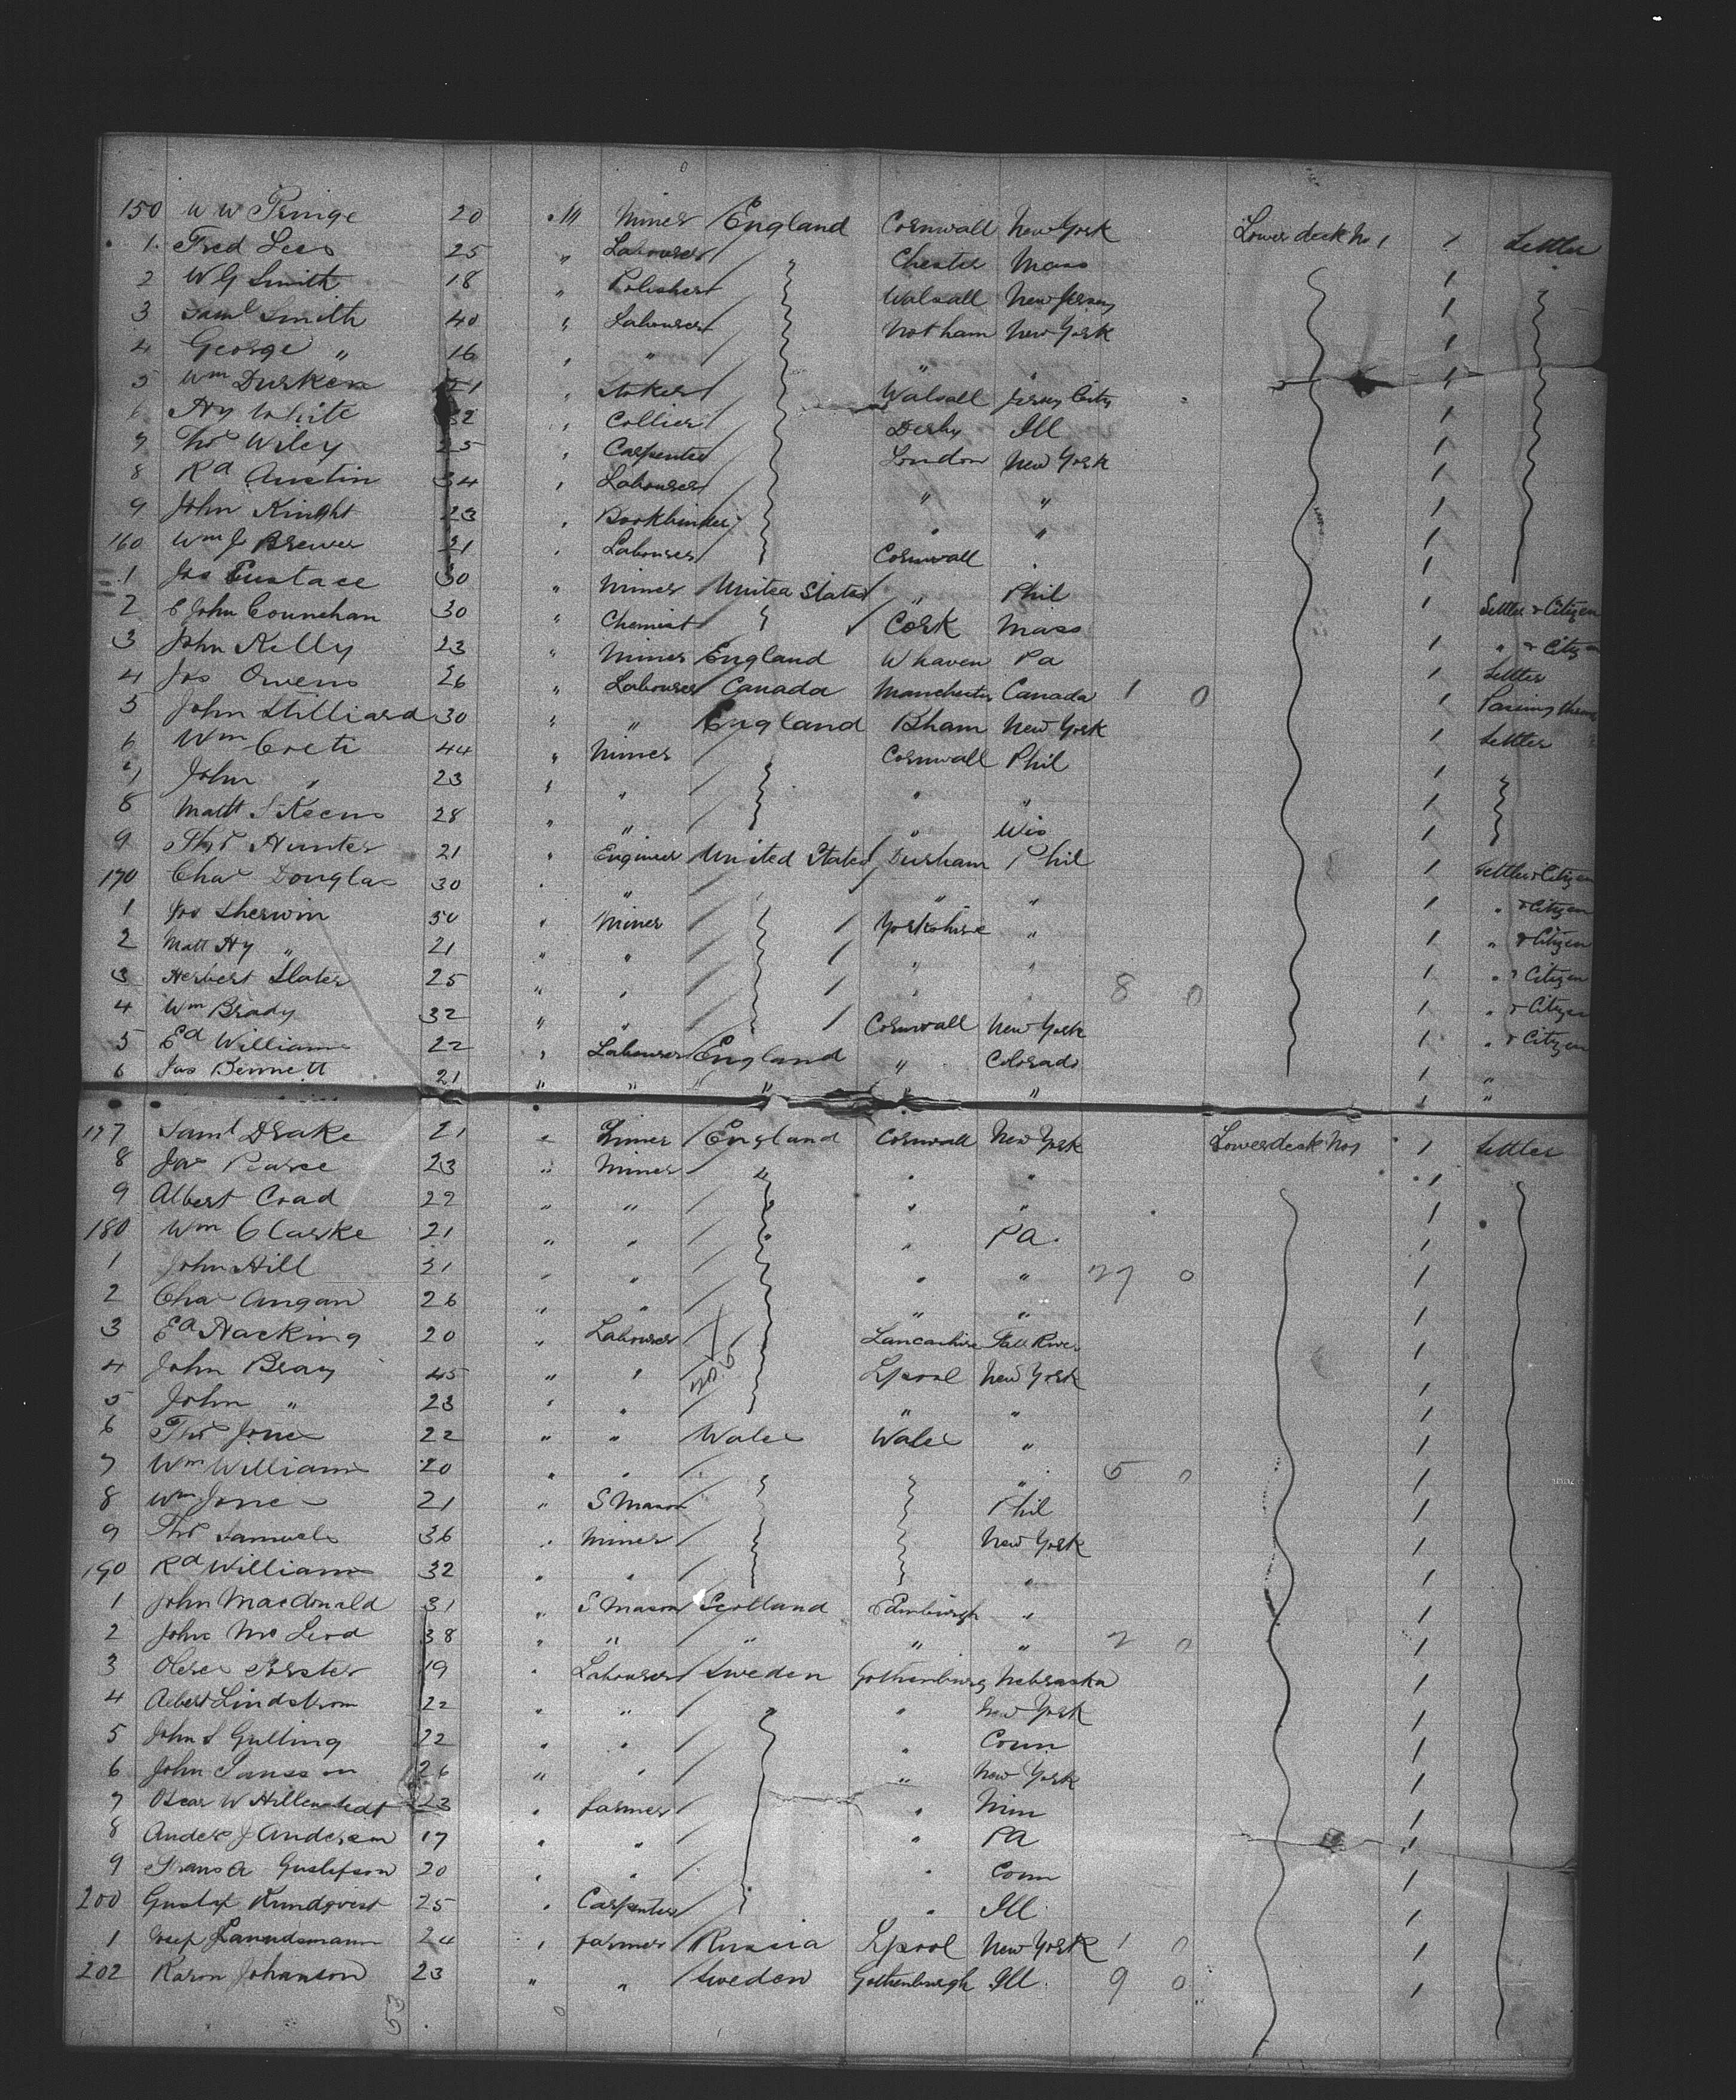 150 W W Pringe 20 M Miner England Cornwall New York Lower deck No 1 1 Settler
1 Fred Lees 25 " Labourer Chester Mass 1
2 W G Smith 18 " Polisher Walsall New Jersey 1
3 Saml Smith 40 " Labourer Notham New York 1
4 George " 16 " " " " 1
5 Wm Durken 21 " Stoker Walsall Jersey City 1
6 Hy White 32 " Collier Derby Ill 1
7 Thos Wiley 25 " Carpenter London New York 1
8 Rd Austin 34 " Labourer " " 1
9 John Knight 23 " Bookbinder " " 1
160 Wm J Brewer 21 " Labourer Cornwall " 1
1 Jas Eustace 30 " Miner United States " Phil 1 Settler & Citizen
2 C John Counehan 30 " Chemist Cork Mass 1 " & Citizen
3 John Kelly 23 " Miner England W haven Pa 1 Settler
4 Jos Owens 26 " Labourer Canada Manchester Canada 1 0 1 Passing thru
5 John Stilliard 30 " " England Bham New York 1 Settler
6 Wm 44 " Miner Cornwall Phil 1
7 John " 23 " " " " 1
8 Matt 28 " " " Wis 1
9 Thos Hunter 21 " Engineer United States Durham Phil 1 Settler & Citizen
170 Chas Douglas 30 " " " " 1 " & Citizen
1 Jos Sherwin 50 " Miner Yorkshire " 1 " & Citizen
2 Matt Hy " 21 " " " " 1 " & Citizen
3 Herbert Slater 25 " " " " 8 0 1 " & Citizen
4 Wm Brady 32 " " Cornwall New York 1 " & Citizen
5 Ed Williams 22 " Labourer England " Colorado 1 "
6 Jas Bennett 21 " " " " " 1 "
177 Saml Drake 21 " Miner England Cornwall New York Lower deck No 1 1 Settler
8 Jos Pearce 23 " Miner " " 1
9 Albert Coad 22 " " " " 1
180 Wm Clarke 21 " " " Pa. 1
1 John Hill 31 " " " " 27 0 1
2 Chas Angan 26 " " " " 1
3 Ed Hacking 20 " Labourer Lancashire Fall River 1
4 John Bray 45 " " Lpool New York 1
5 John " 23 " " " " 1
6 Thos Jones 22 " " Wales Wales " 1
7 Wm Williams 20 " " " 5 0 1
8 Wm Jones 21 " S Mason Phil 1
9 Thos Samuels 36 " Miner New York 1
190 Rd Williams 32 " " " 1
1 John Macdonald 31 " S Mason Scotland Edinburgh " 1
2 John McLeod 38 " " " " " 2 0 1
3 Forster 19 " Labourer Sweden Gothenburg Nebraska 1
4 Albert Lindstrom 22 " " " New York 1
5 John S Gulling 22 " " " Conn 1
6 John Sansson 26 " " " New York 1
7 Oscar W 23 " farmer " Minn 1
8 Anders J Anderson 17 " " " PA 1
9 Frans A Gustafson 20 " " " Conn 1
200 Gustaf Rundqvist 25 " Carpenter " Ill. 1
1 Josef 24 " farmer Russia Lpool New York 1 0 1
202 Karon Johanson 23 " " Sweden Gothenburgh Ill. 9 0 1
53